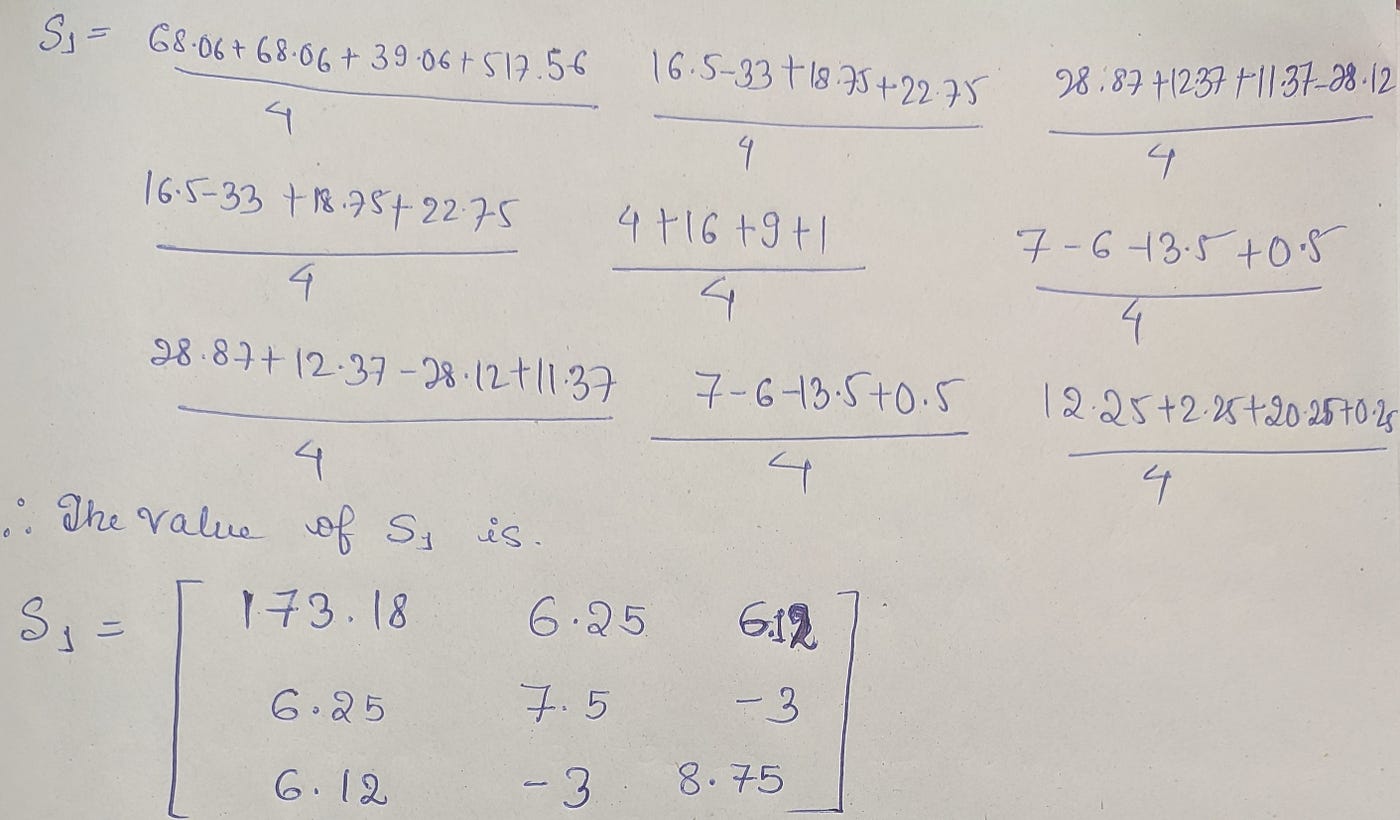 S1 = 68.06+68.06+39.06+517.56 16.5-33+18.75+22.75 28.87+12.37+11.37-28.12
4 4 4
16.5-33+18.75+22.75 4+16+9+1 7-6-13.5+0.5
4 4 4
28.87+12.37-28.12+11.37 7-6-13.5+0.5 12.25+2.25+20.25+0.25
4 4 4
∴ The value of S1 is.
S1 = 173.18 6.25 6.12
6.25 7.5 -3
6.12 -3 8.75